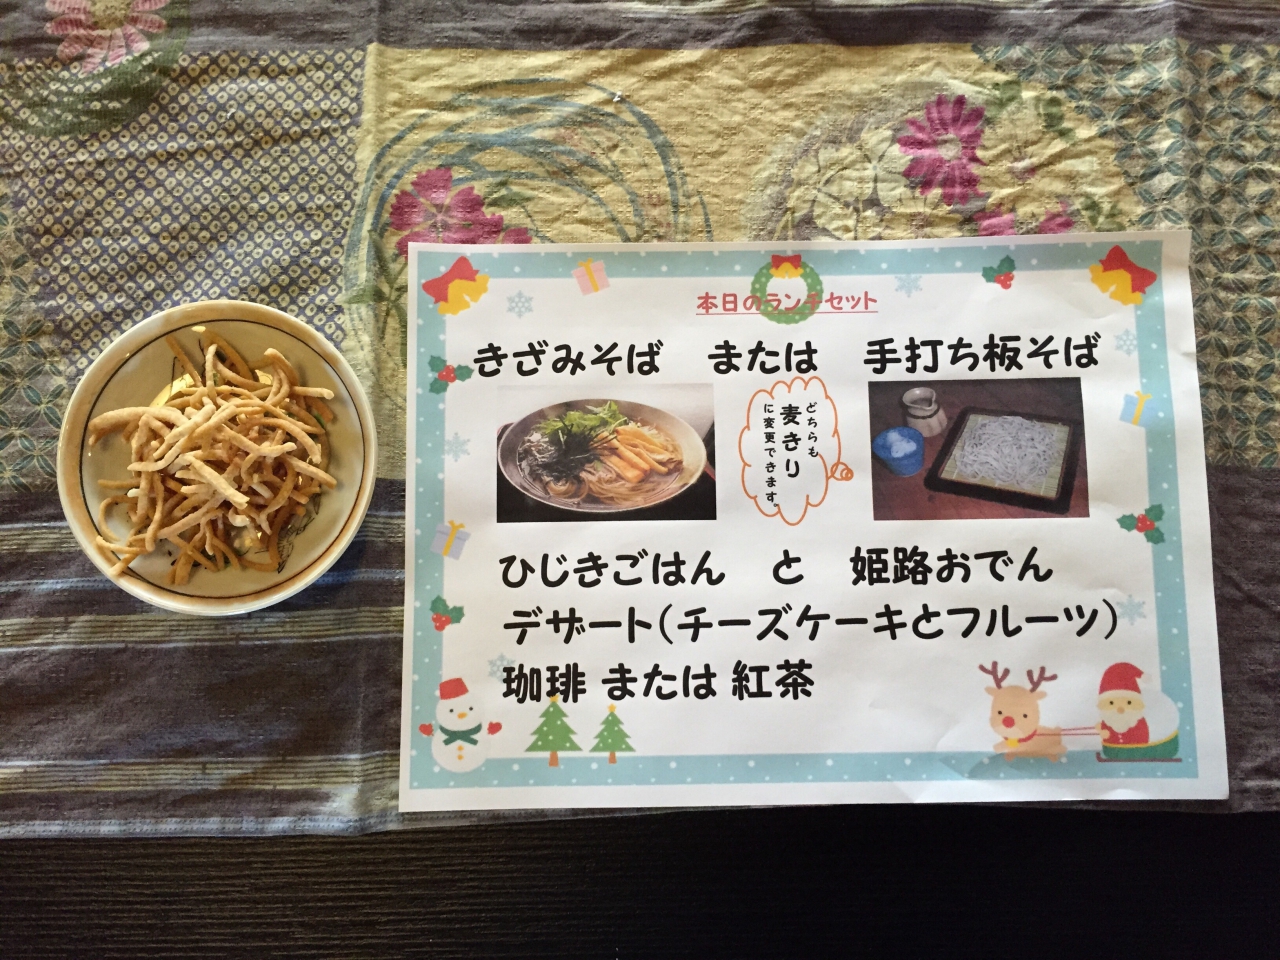 本日のランチセット
きざみそば または 手打ち板そば
どちらも
麦きり
に変更できます。
ひじきごはん と 姫路おでん
デザート(チーズケーキとフルーツ)
珈琲 または 紅茶